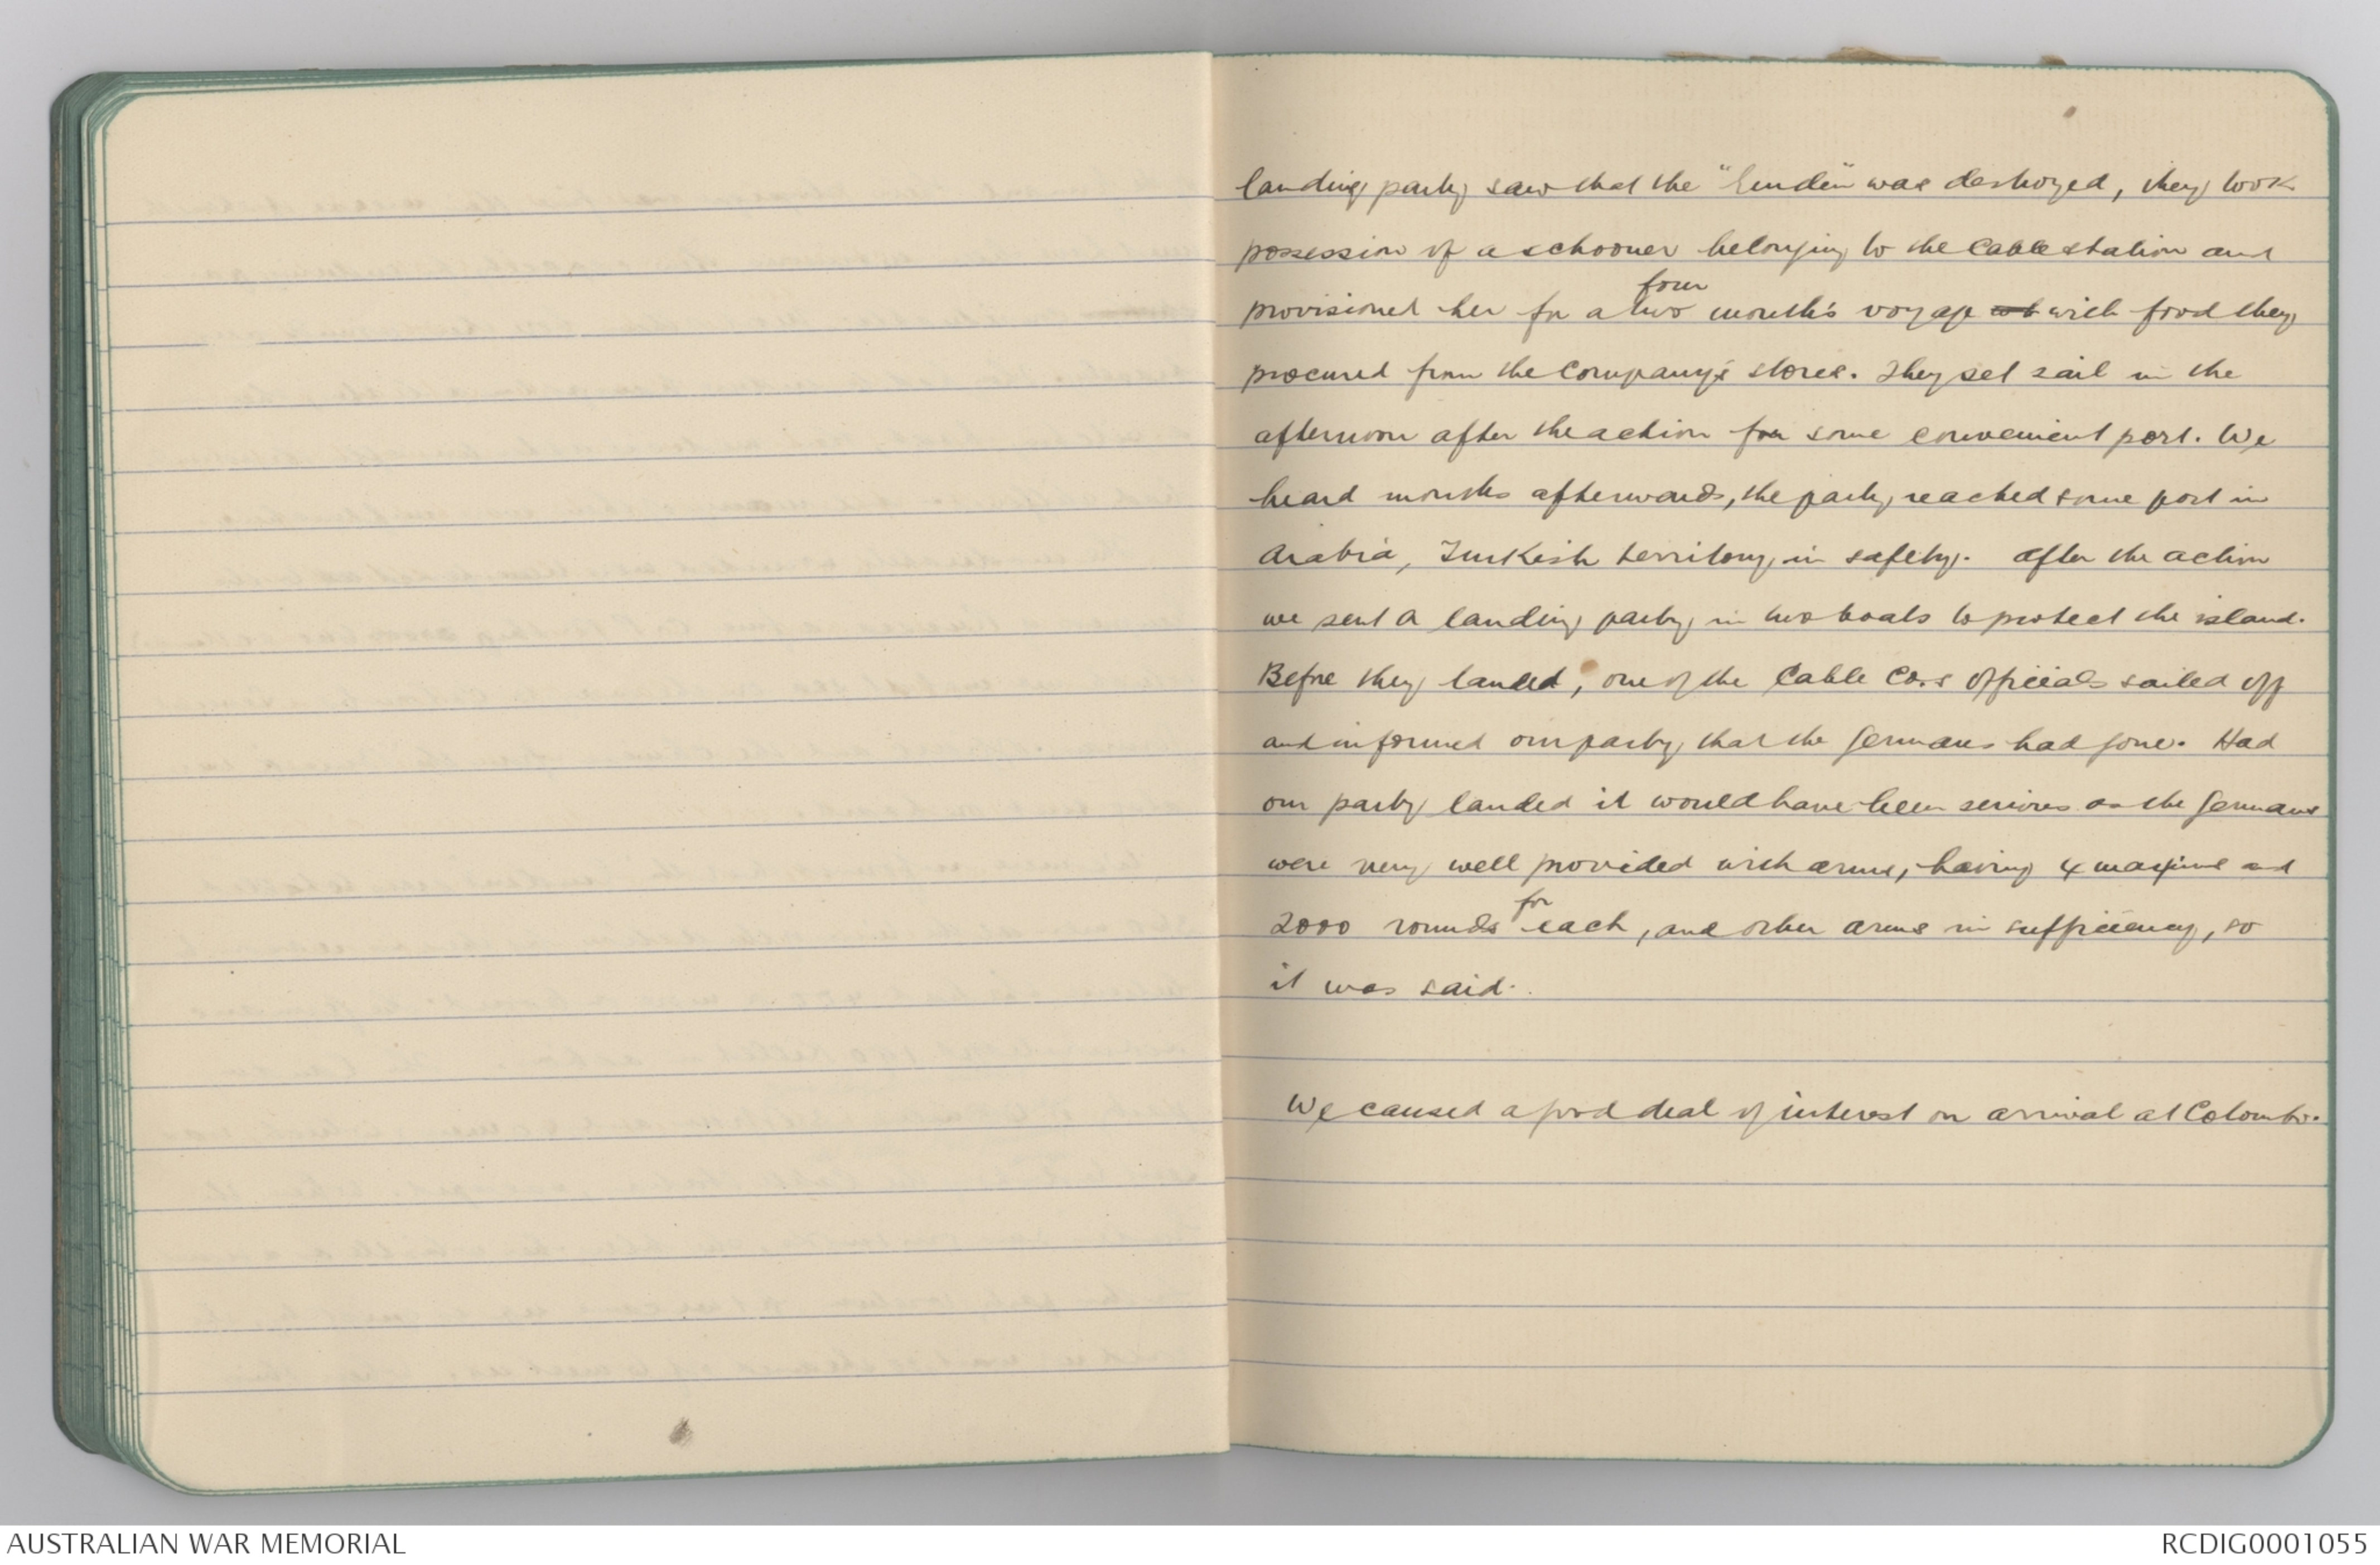 landing party saw that the "Emden" was destroyed, they took
possession of a schooner belonging to the Cable station and
four
provisioned her for a two month's voyage with food they
procured from the Company's stores. They set sail in the
afternoon after the action for some convenient port. We
heard months afterwards, the party reached some port in
Arabia, Turkish territory, in safety. After the action
we sent a landing party, in two boats to protect the island.
Before they landed, one of the Cable Co.s officials sailed off
and informed our party, that the Germans had gone. Had
our party landed it would have been serious as the Germans
were very well provided with arms, having 4 maxims and
for
2000 rounds each, and other arms in sufficiency, so
it was said.
We caused a good deal of interest on arrival at Colombo.
AUSTRALIAN WAR MEMORIAL
RCDIG0001055